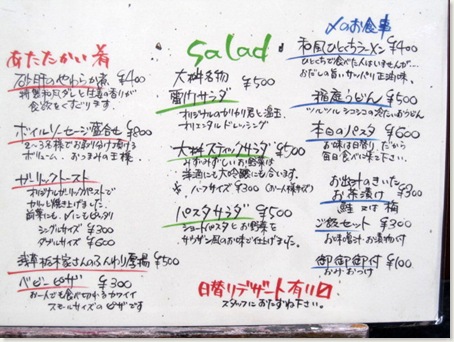 あたたかい肴
砂肝のやわらか煮 ¥400
特製和風ダレと生姜の香りが
食欲をくすぐります。
ボイルソーセージ盛合せ ¥800
2〜3名様でお召し上り頂ける
ボリューム、おつまみの王様
ガーリックトースト
オリジナルガーリックペーストで
カリッと焼き上げました。
前菜にも、〆にもピッタリ
シングルサイズ ¥300
ダブルサイズ ¥600
浅草栃木家さんのふんわり厚揚 ¥500
ベビーピザ ¥300
お一人でも食べ切れるカワイイ
スモールサイズのピザです
Salad
大桝名物
雷門サラダ ¥500
オリジナルのカリカリ君と温玉
オリエンタルドレッシング
大桝スティックサラダ ¥500
みずみずしいお野菜は
洋酒にも大吟醸にも合います。
* ハーフサイズ ¥300 (お一人様サイズ)
パスタサラダ ¥500
ショートパスタとお野菜を
サウザン風のお味で仕上げました。
日替りデザート有り〼
スタッフにおたずね下さい。
〆のお食事
和風ひとくちラーメン ¥400
ひとくちで食べた人はいませんが…
おだしの旨い、サッパリ正油味。
稲庭うどん ¥500
ツルツルシコシコの冷たいおうどん
本日のパスタ ¥600
お味は日替り だから
毎日食べに来て下さい。
お出汁のきいた
お茶漬け ¥300
鮭 又は 梅
ご飯セット ¥300
お味噌汁・お漬物付
御御御付 ¥100
おみおつけ